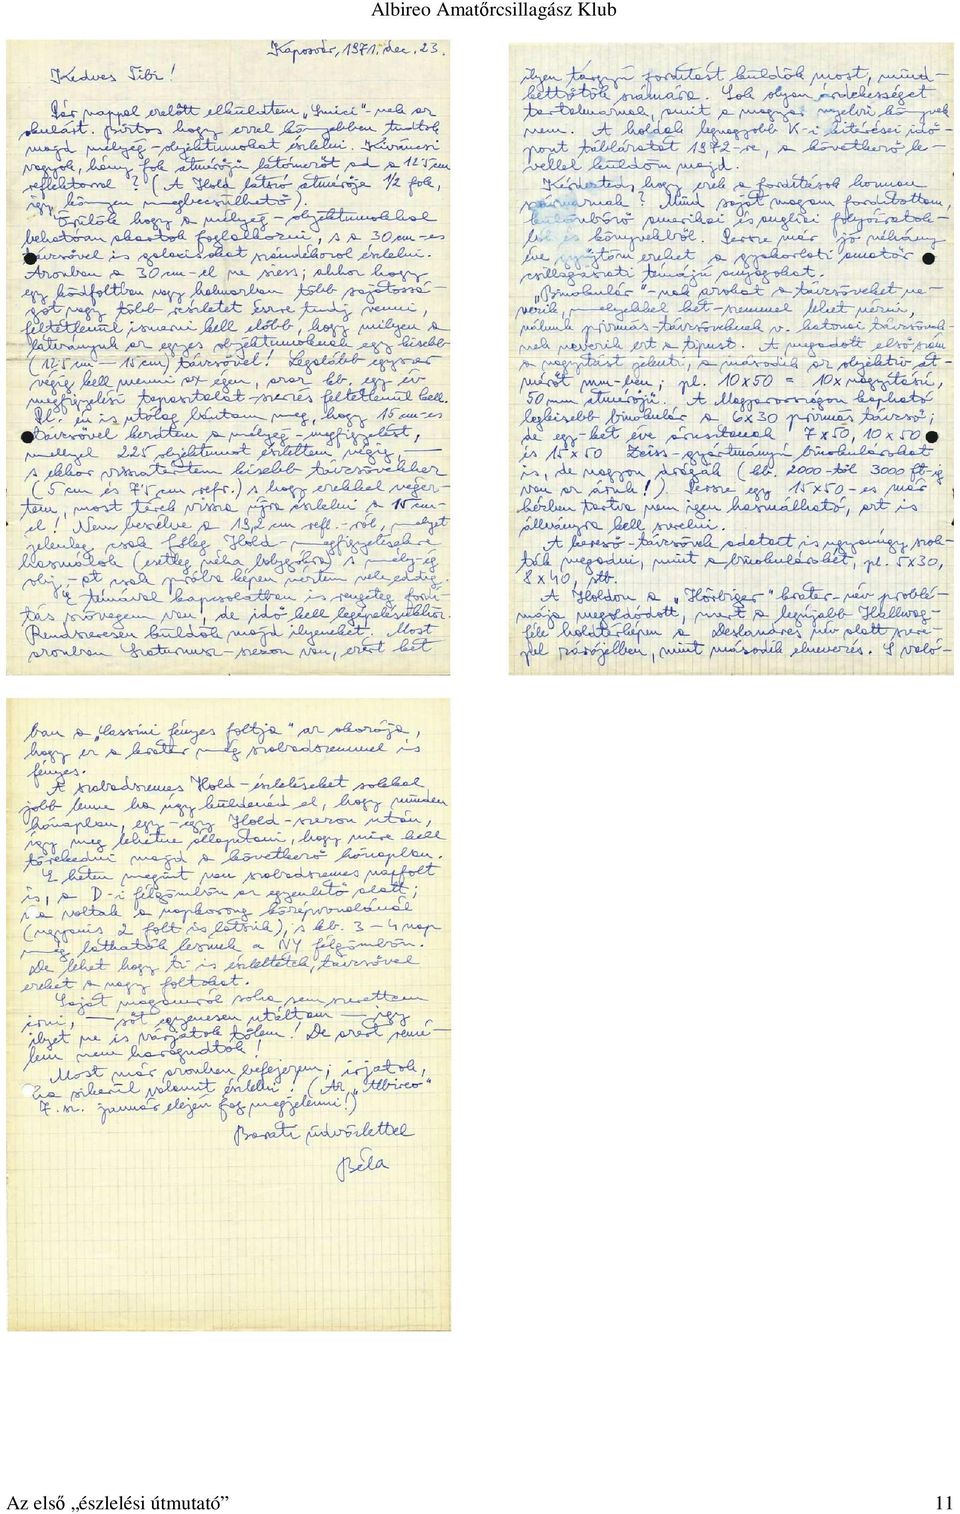 Albireo Amatőrcsillagász Klub
Kaposvár, 1971. dec. 23.
Kedves Tibi!
Pár nappal előtt elküldtem „Smici"-nek az
okulárt. Biztos hogy ezzel könnyebben tudtok
majd mélyég-objektumokat észlelni. Kiváncsi
vagyok, hány fok átmérőjű látómezőt ad a 12'5 cm
reflektorral? (A Hold látszó átmérője 1/2 fok,
így könnyen megbecsülhető).
Örülök hogy a mélyég-objektumokkal
behatóan akartok foglalkozni, s a 30 cm-es
távcsővel is galaxisokat szándékozol észlelni.
Azonban a 30 cm-el ne siess; ahhoz hogy
egy ködfoltban vagy halmazban több sajátossá-
got vagy több részletet észre tudj venni,
feltétlenül ismerni kell előbb, hogy milyen a
látványuk az egyes objektumoknak egy kisebb
(12'5 cm — 15 cm) távcsővel! Legalább egyszer
végig kell menni az egen, azaz kb. egy év
megfigyelési tapasztalat-szerzés feltétlenül kell.
Pl. én is utólag bántam meg, hogy 15 cm-es
távcsővel kezdtem a mélyég-megfigyelést,
mellyel 225 objektumot észleltem végig, —
s ekkor visszatértem kisebb távcsövekhez
(5 cm és 7'5 cm refr.) s hogy ezekkel végez-
tem, most térek vissza újra észlelni a 15 cm-
el! Nem beszélve a 19,2 cm refl.-ról, melyet
jelenleg csak főleg Hold-megfigyelésekre
használok (esetleg néha bolygókra) s mély-ég
obj.-ot csak próba képen néztem vele eddig.
E témával kapcsolatban is rengeteg fordí-
tás szövegem van, de idő kell legépelésükhöz.
Rendszeresen küldök majd ilyeneket. Most
azonban Szaturnusz-szezon van, ezért két
ilyen tárgyú fordítást küldök most, mind-
kettőtök számára. Sok olyan érdekességet
tartalmaznak, amit a magyar nyelvű könyvek
nem. A holdak legnagyobb K-i kitérései idő-
pont táblázatát 1972-re, a következő le-
vellel küldöm majd.
Kérdezted, hogy ezek a fordítások honnan
származnak? Mind saját magam fordítottam,
különböző amerikai és angliai folyóiratok-
ból és könyvekből. Persze már jó néhány
éve gyűjtöm ezeket a gyakorlati amatőr
csillagászati témájú anyagokat.
„Binokulár"-nak azokat a távcsöveket ne-
vezik, melyekkel két-szemmel lehet nézni,
nálunk prizmás-távcsöveknek v. katonai távcsövek-
nek nevezik ezt a típust. A megadott első szám
a nagyítást jelenti, a második az objektív át-
mérőt mm-ben; pl. 10x50 = 10x nagyítású,
50 mm átmérőjű. A Magyarországon kapható
legkisebb binokulár a 6x30 prizmás távcső;
de egy-két éve árusítanak 7x50, 10x50
és 15x50 Zeiss-gyártmányú binokulárokat
is, de nagyon drágák (kb. 2000-től 3000 ft-ig
van az áruk!). Persze egy 15x50-es már
kézben tartva nem igen használható, azt is
állványra kell szerelni.
A kereső-távcsövek adatait is ugyanúgy szok-
ták megadni, mint a binokulárokét, pl. 5x30,
8x40, stb.
A Holdon a „Hörbiger" kráter-név problé-
mája megoldódott, mert a legújabb Hallwag-
féle holdtérképen a Deslandres név alatt szere-
pel zárójelben, mint második elnevezés. S való-
ban a „Cassini fényes foltja" az okozója,
hogy ez a kráter még szabadszemmel is
fényes.
A szabadszemes Hold-észleléseket sokkal
jobb lenne ha úgy küldenéd el, hogy minden
hónapban, egy-egy Hold-szezon után,
így meg lehetne állapítani, hogy mire kell
törekedni majd a következő hónapban.
E héten megint van szabadszemes napfolt
is, a D-i félgömbön az egyenlítő alatt;
ma voltak a napkorong középvonalánál
(ugyanis 2 folt is látszik), s kb. 3 — 4 nap
még láthatók lesznek a NY félgömbön.
De lehet hogy ti is észleltétek, távcsővel
ezeket a nagy foltokat.
Saját magamról soha sem szerettem
írni, — sőt egyenesen utáltam — így
ilyet ne is várjatok tőlem! De azért remé-
lem nem haragudtok!
Most már azonban befejezem; írjatok,
ha sikerül valamit észlelni! (Az „Albireo"
7. sz. január elején fog megjelenni!)
Baráti üdvözlettel
Béla
Az első „észlelési útmutató” 11